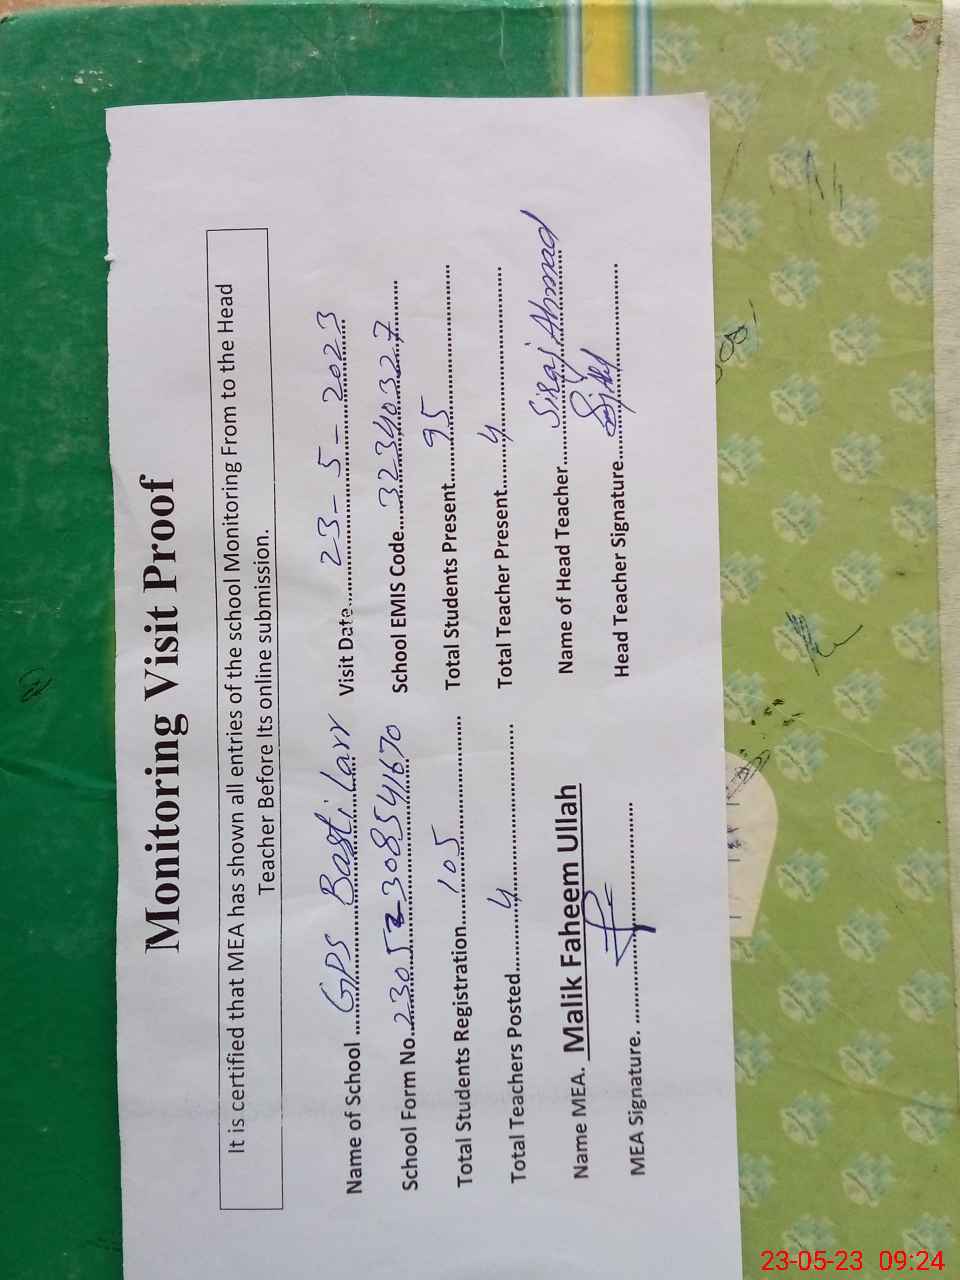 Monitoring Visit Proof
It is certified that MEA has shown all entries of the school Monitoring From to the Head
Teacher Before Its online submission.
Name of School ........ GPS Basti Larr Visit Date........ 23-5-2023
School Form No........ 23052308541670 School EMIS Code........ 32340327
Total Students Registration........ 105 Total Students Present........ 95
Total Teachers Posted........ 4 Total Teacher Present........ 4
Name MEA. Malik Faheem Ullah Name of Head Teacher........ Siraj Ahmad
MEA Signature. ........ Head Teacher Signature........
23-05-23 09:24